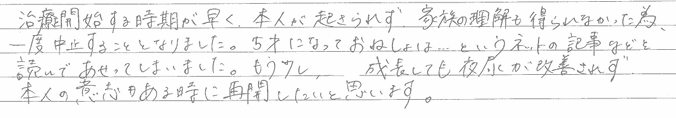 治療開始する時期が早く、本人が起きられず、家族の理解も得られなかった為、
一度中止することとなりました。5才になっておねしょは…というネットの記事などを
読んであせってしまいました。もう少し、成長しても夜尿が改善されず
本人の意志もある時に再開したいと思います。